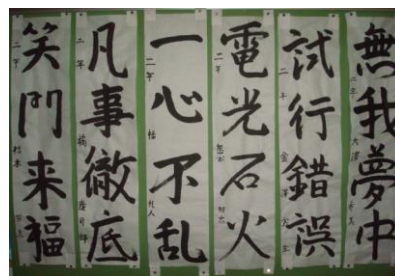 無我夢中
試行錯誤
電光石火
一心不乱
凡事徹底
笑門来福
二年